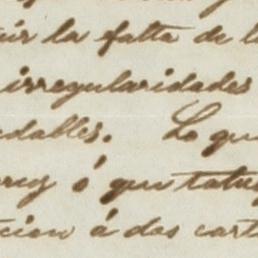 uir la falta de l
irregularidades
dables. Lo que
ó que
cion á dos cart